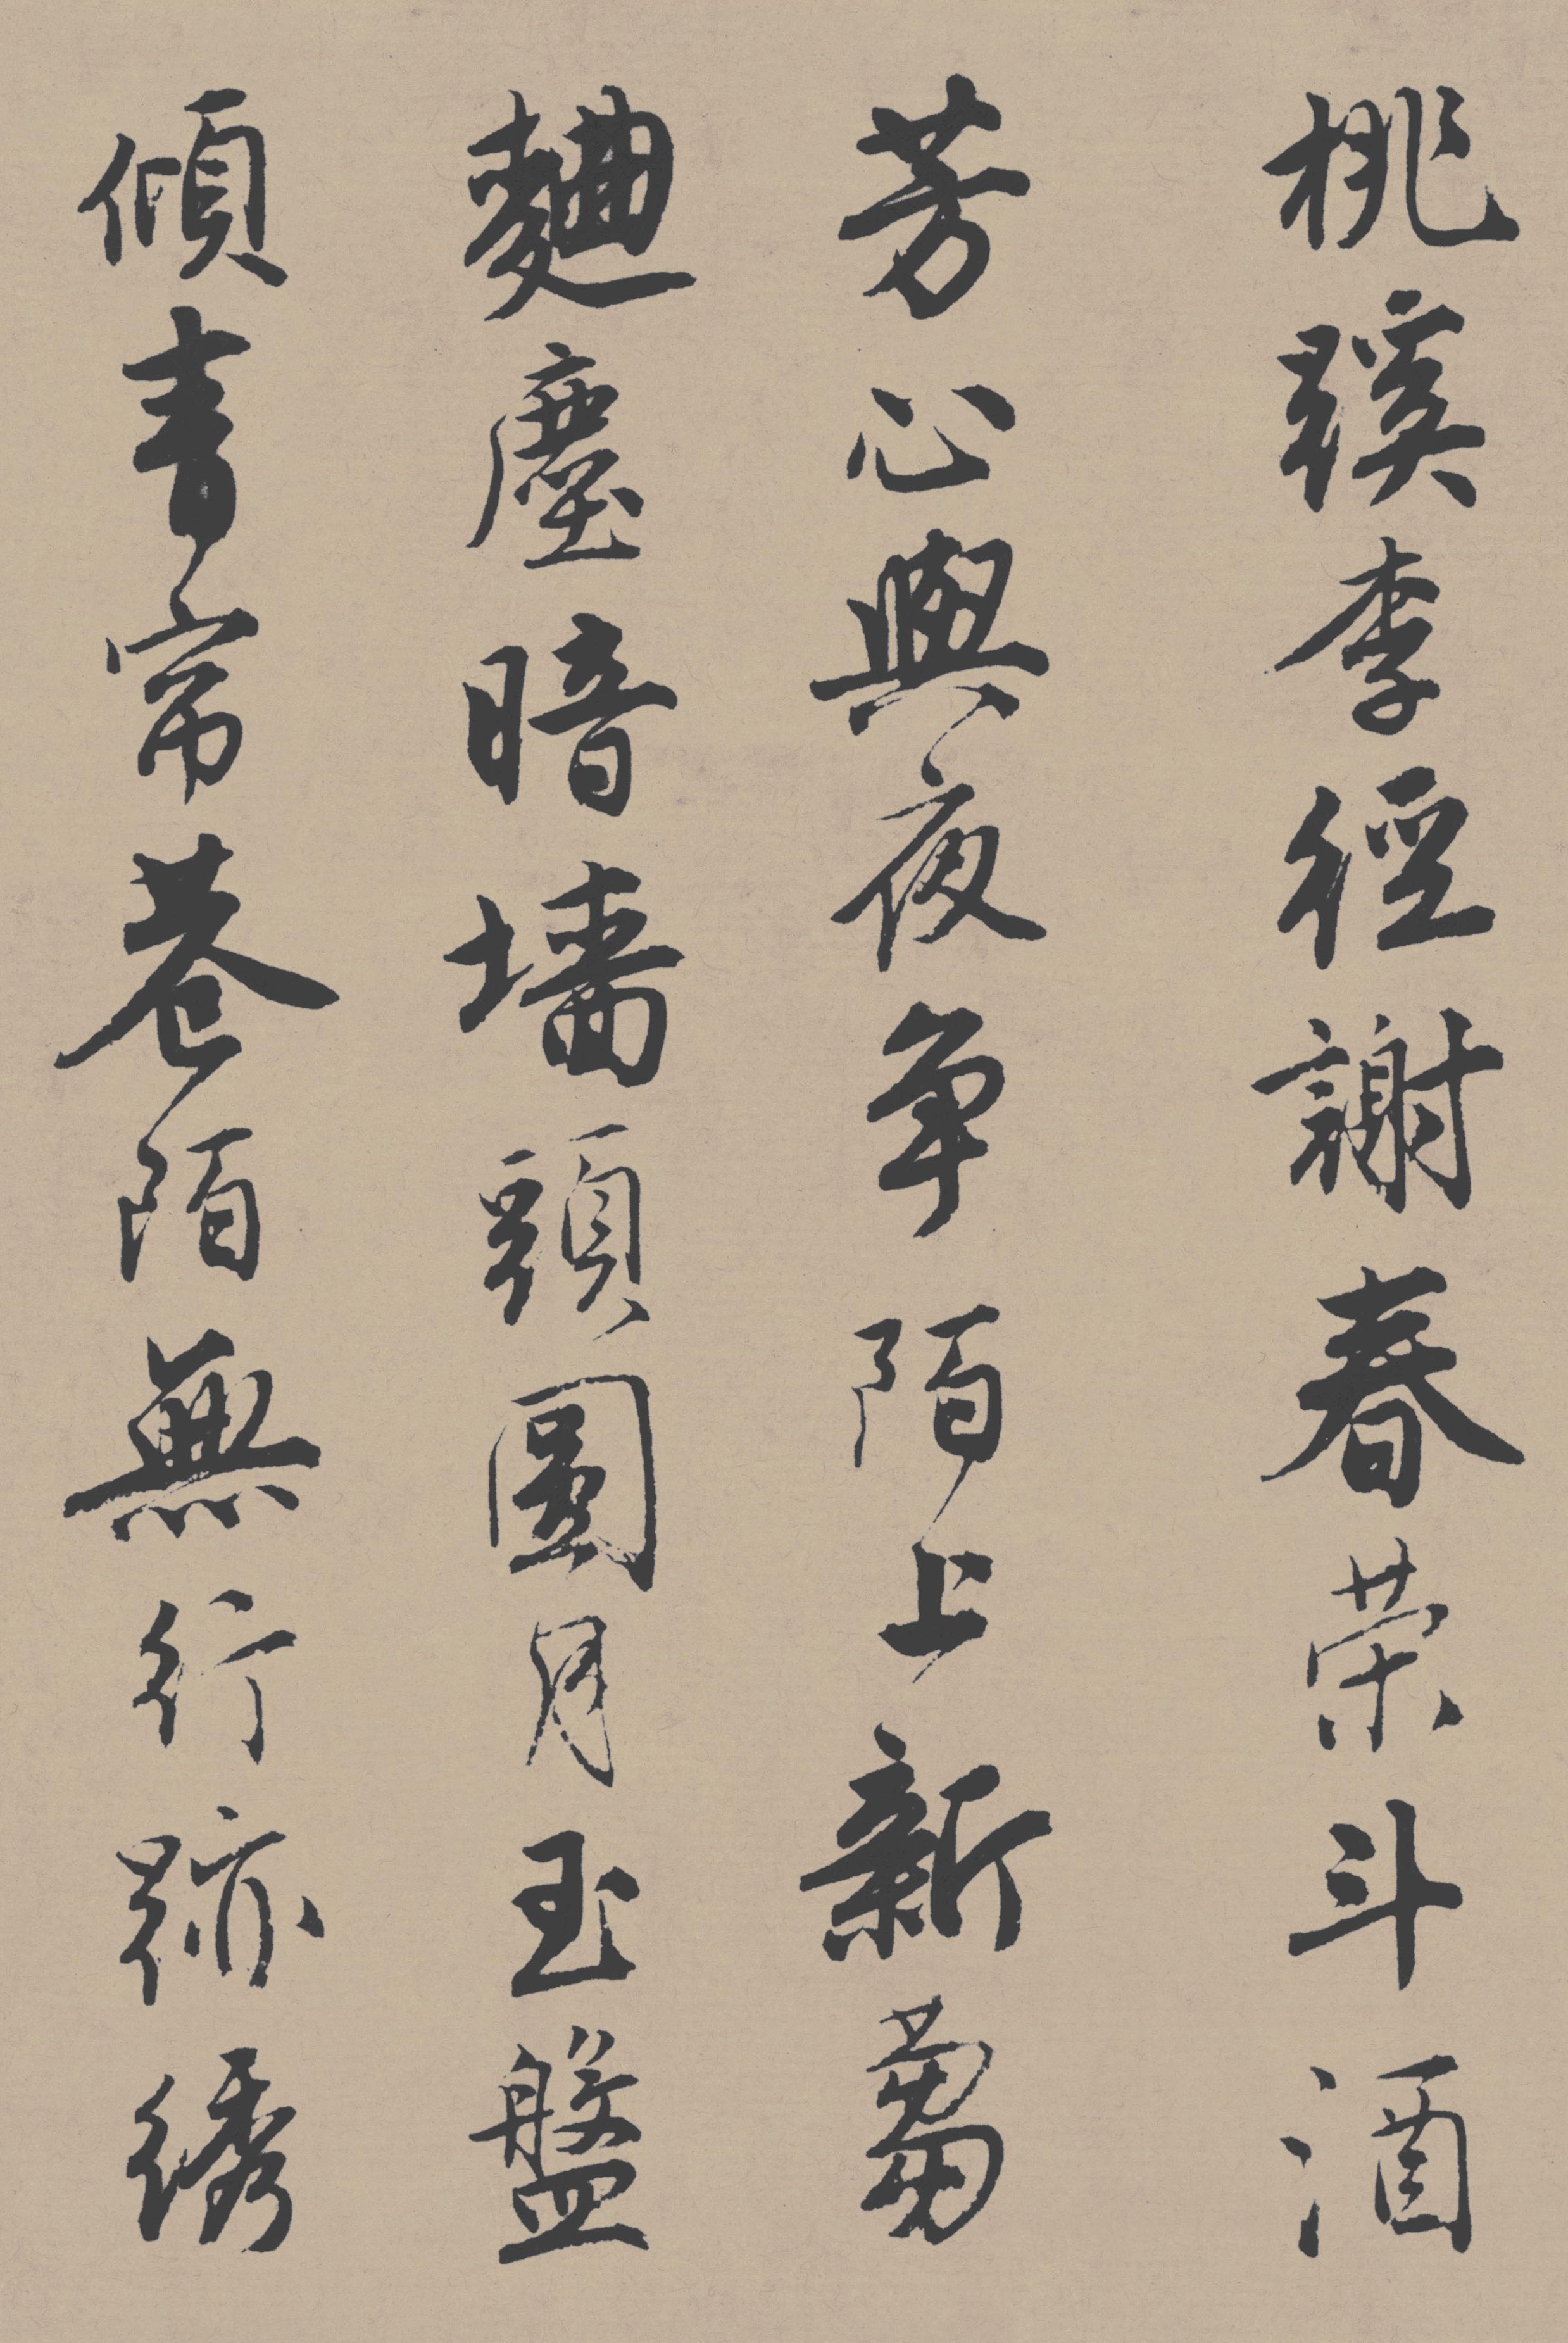 桃蹊李徑謝春荣斗酒
芳心與夜争陌上新蒭
麯塵暗墻頭圓月玉盤
傾青帘巷陌無行跡綉